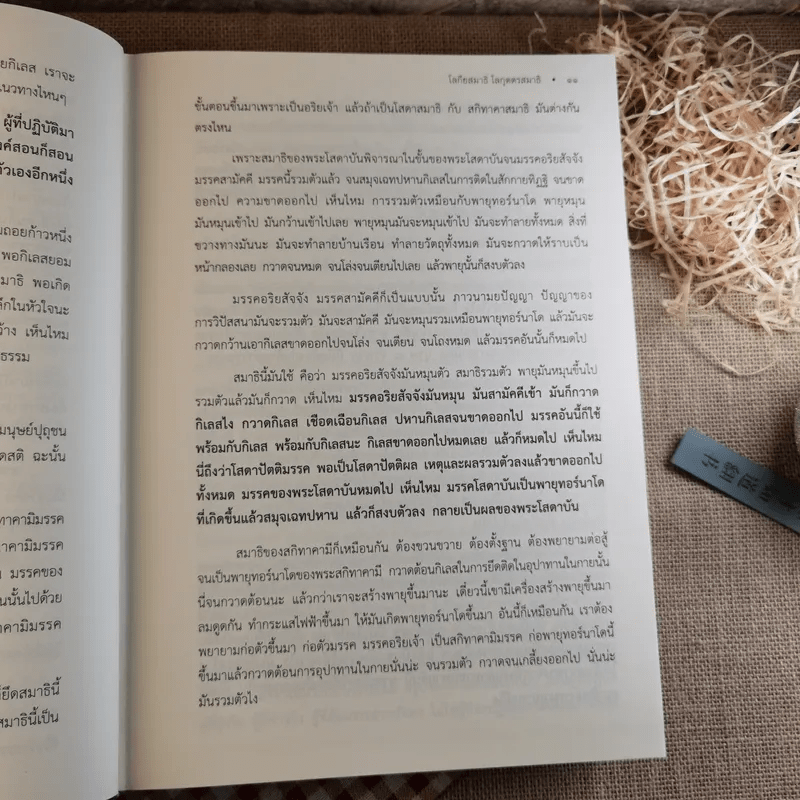 ยกิเลส เราจะ
แนวทางไหนๆ
ผู้ที่ปฏิบัติมา
งค์สอนก็สอน
ตัวเองอีกหนึ่ง
มถอยก้าวหนึ่ง
พอกิเลสยอม
มาธิ พอเกิด
ล็กในหัวใจนะ
ว้าง เห็นไหม
ธรรม
มนุษย์ปุถุชน
ดสติ ฉะนั้น
ทาคามิมรรค
คามิมรรค
มรรคของ
นนั้นไปด้วย
าคามิมรรค
ยึดสมาธินี้
สมาธินี้เป็น
โลกียสมาธิ โลกุตตรสมาธิ • ๑๑
ขั้นตอนขึ้นมาเพราะเป็นอริยเจ้า แล้วถ้าเป็นโสดาสมาธิ กับ สกิทาคาสมาธิ มันต่างกัน
ตรงไหน
เพราะสมาธิของพระโสดาบันพิจารณาในขั้นของพระโสดาบันจนมรรคอริยสัจจัง
มรรคสามัคคี มรรคนี้รวมตัวแล้ว จนสมุจเฉทปหานกิเลสในการติดในสักกายทิฏฐิ จนขาด
ออกไป ความขาดออกไป เห็นไหม การรวมตัวเหมือนกับพายุทอร์นาโด พายุหมุน
มันหมุนเข้าไป มันกว้านเข้าไปเลย พายุหมุนมันจะหมุนเข้าไป มันจะทำลายทั้งหมด สิ่งที่
ขวางทางมันนะ มันจะทำลายบ้านเรือน ทำลายวัตถุทั้งหมด มันจะกวาดให้ราบเป็น
หน้ากลองเลย กวาดจนหมด จนโล่งจนเตียนไปเลย แล้วพายุนั้นก็สงบตัวลง
มรรคอริยสัจจัง มรรคสามัคคีก็เป็นแบบนั้น ภาวนามยปัญญา ปัญญาของ
การวิปัสสนามันจะรวมตัว มันจะสามัคคี มันจะหมุนรวมเหมือนพายุทอร์นาโด แล้วมันจะ
กวาดกว้านเอากิเลสขาดออกไปจนโล่ง จนเตียน จนโถงหมด แล้วมรรคอันนั้นก็หมดไป
สมาธินี้มันใช้ คือว่า มรรคอริยสัจจังมันหมุนตัว สมาธิรวมตัว พายุมันหมุนขึ้นไป
รวมตัวแล้วมันก็กวาด เห็นไหม มรรคอริยสัจจังมันหมุน มันสามัคคีเข้า มันก็กวาด
กิเลสไง กวาดกิเลส เชือดเฉือนกิเลส ปหานกิเลสจนขาดออกไป มรรคอันนี้ก็ใช้
พร้อมกับกิเลส พร้อมกับกิเลสนะ กิเลสขาดออกไปหมดเลย แล้วก็หมดไป เห็นไหม
นี่ถึงว่าโสดาปัตติมรรค พอเป็นโสดาปัตติผล เหตุและผลรวมตัวลงแล้วขาดออกไป
ทั้งหมด มรรคของพระโสดาบันหมดไป เห็นไหม มรรคโสดาบันเป็นพายุทอร์นาโด
ที่เกิดขึ้นแล้วสมุจเฉทปหาน แล้วก็สงบตัวลง กลายเป็นผลของพระโสดาบัน
สมาธิของสกิทาคามีก็เหมือนกัน ต้องขวนขวาย ต้องตั้งฐาน ต้องพยายามต่อสู้
จนเป็นพายุทอร์นาโดของพระสกิทาคามี กวาดต้อนกิเลสในการยึดติดในอุปาทานในกายนั้น
นี่จนกวาดต้อนนะ แล้วกว่าเราจะสร้างพายุขึ้นมานะ เดี๋ยวนี้เขามีเครื่องสร้างพายุขึ้นมา
ลมดูดกัน ทำกระแสไฟฟ้าขึ้นมา ให้มันเกิดพายุทอร์นาโดขึ้นมา อันนี้ก็เหมือนกัน เราต้อง
พยายามก่อตัวขึ้นมา ก่อตัวมรรค มรรคอริยเจ้า เป็นสกิทาคามิมรรค ก่อพายุทอร์นาโดนี้
ขึ้นมาแล้วกวาดต้อนการอุปาทานในกายนั่นน่ะ จนรวมตัว กวาดจนเกลี้ยงออกไป นั่นน่ะ
มันรวมตัวไง